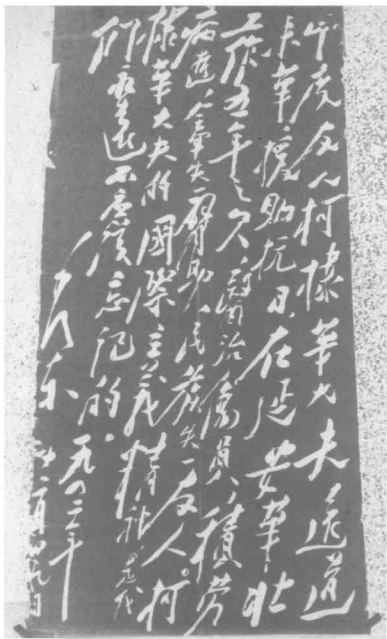 印度友人柯棣華大夫遠道
來華援助抗日,在延安華北
工作五年之久,醫治傷員,積勞
病逝,全軍失一臂助,民族失一友人。柯
棣華大夫的國際主義精神,是我
們永遠不應該忘記的。
毛澤東
一九四二年
十二月廿九日